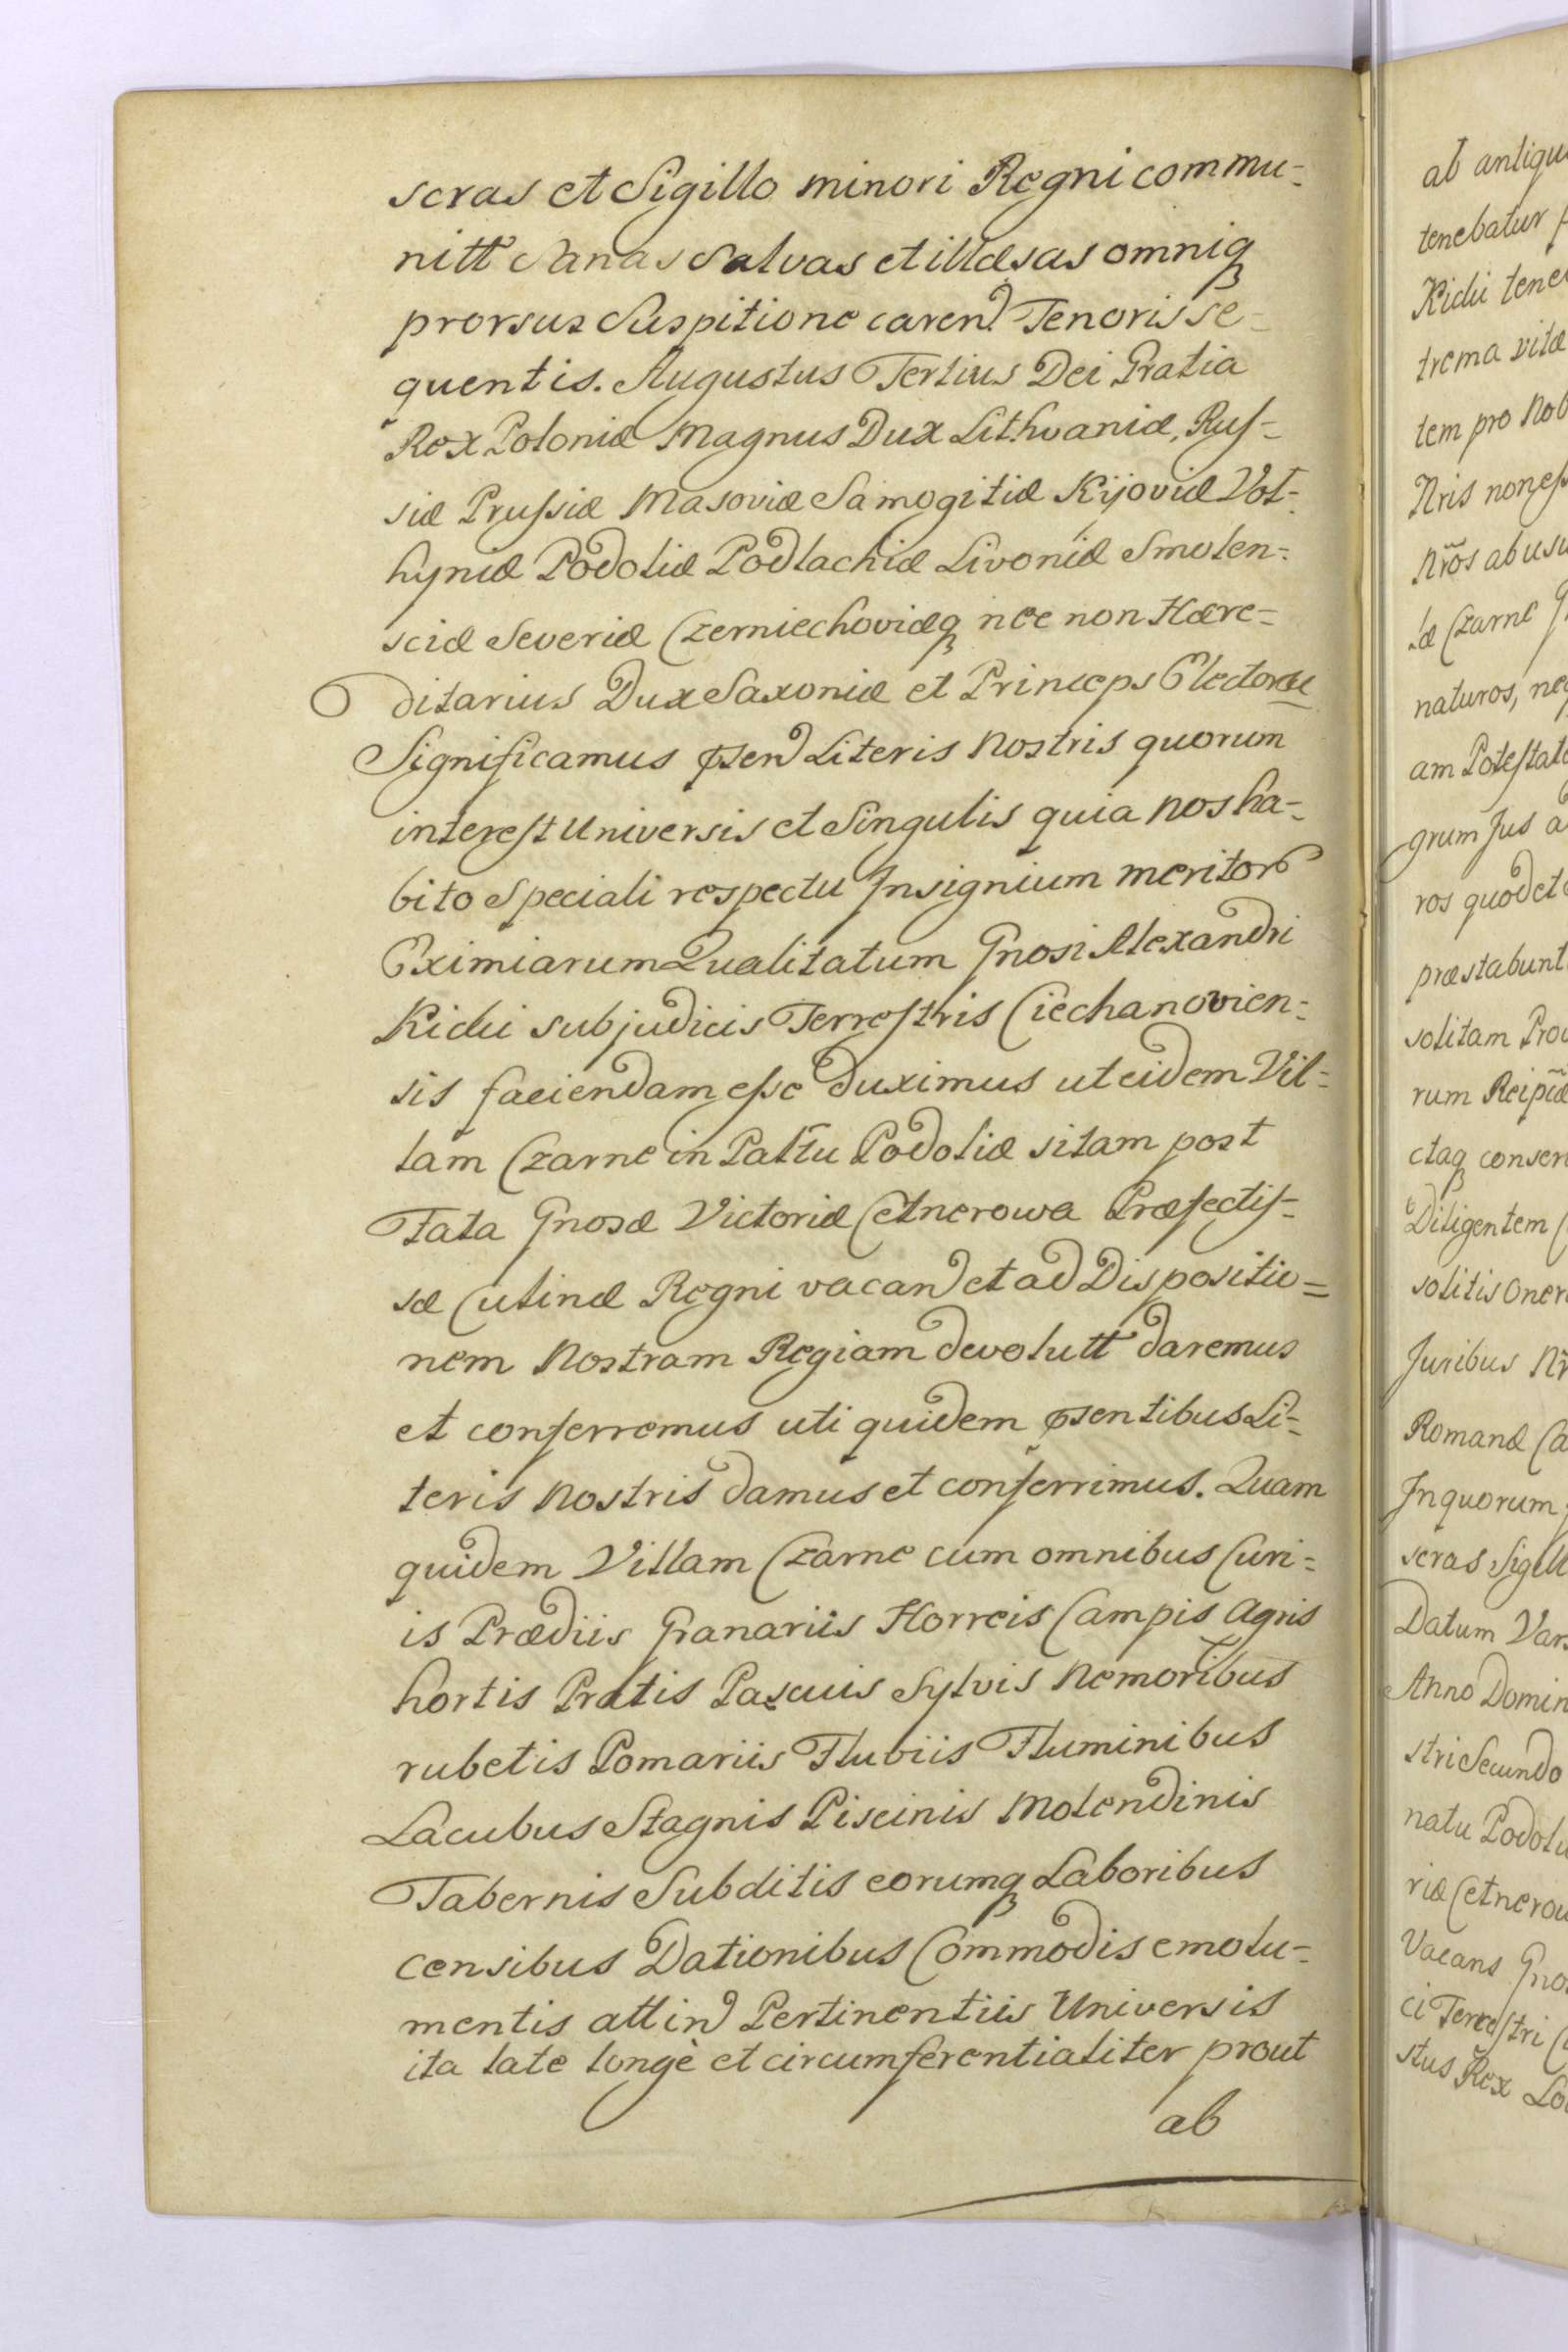 scras et Sigillo minori Regni commu-
nitt Sanas Salvas et illæsas omniq
prorsus Suspitione caren Tenoris se-
quentis. Augustus Tertius Dei Gratia
Rex Poloniæ Magnus Dux Lithvaniæ, Rus-
siæ Prussiæ Masoviæ Samogitiæ Kijoviæ Vol-
hyniæ Podoliæ Podlachiæ Livoniæ Smolen-
sciæ Severiæ Czerniechoviæq nec non Hære-
ditarius Dux Saxoniæ et Princeps Elector
Significamus psen Literis Nostris quorum
interest Universis et Singulis quia nos ha-
bito Speciali respectu Insignium meritor
Eximiarum Qualitatum Gnosi Alexandri
Kicki subjudicis Terrestris Ciechanovien-
sis faciendam esse duximus ut eidem Vil-
lam Czarne in Pallu Podoliæ sitam post
Fata Gnosæ Victoriæ Cetnerowa Præfectis-
sæ Culinæ Regni vacan et ad Dispositio=
nem Nostram Regiam devolutt daremus
et conferremus uti quidem psentibus Li-
teris Nostris damus et conferrimus. Quam
quidem Villam Czarne cum omnibus Curi-
is Prædiis Granariis Horreis Campis Agris
hortis Pratis Pascuis Sylvis Nemoribus
rubetis Pomariis Fluviis Fluminibus
Lacubus Stagnis Piscinis Molendinis
Tabernis Subditis eorumq Laboribus
censibus Dationibus Commodis emolu-
mentis attin Pertinentiis Universis
ita late longè et circumferentialiter prout
ab
ab antiqu
tenebatur
Kicki tene
trema vitæ
tem pro Nob
Nris non ess
Nros ab usu
læ Czarne
naturos, ne
am Potestat
grum Jus a
ros quod et
præstabunt
solitam Pro
rum Reipæ
ctaq conser
Diligentem
solitis Oner
Juribus Nr
Romanæ Ca
In quorum
scras Sigill
Datum Vars
Anno Domin
stri Secundo
natu Podol
riæ Cetnero
Vacans Gno
ci Terrestri C
stus Rex Lo